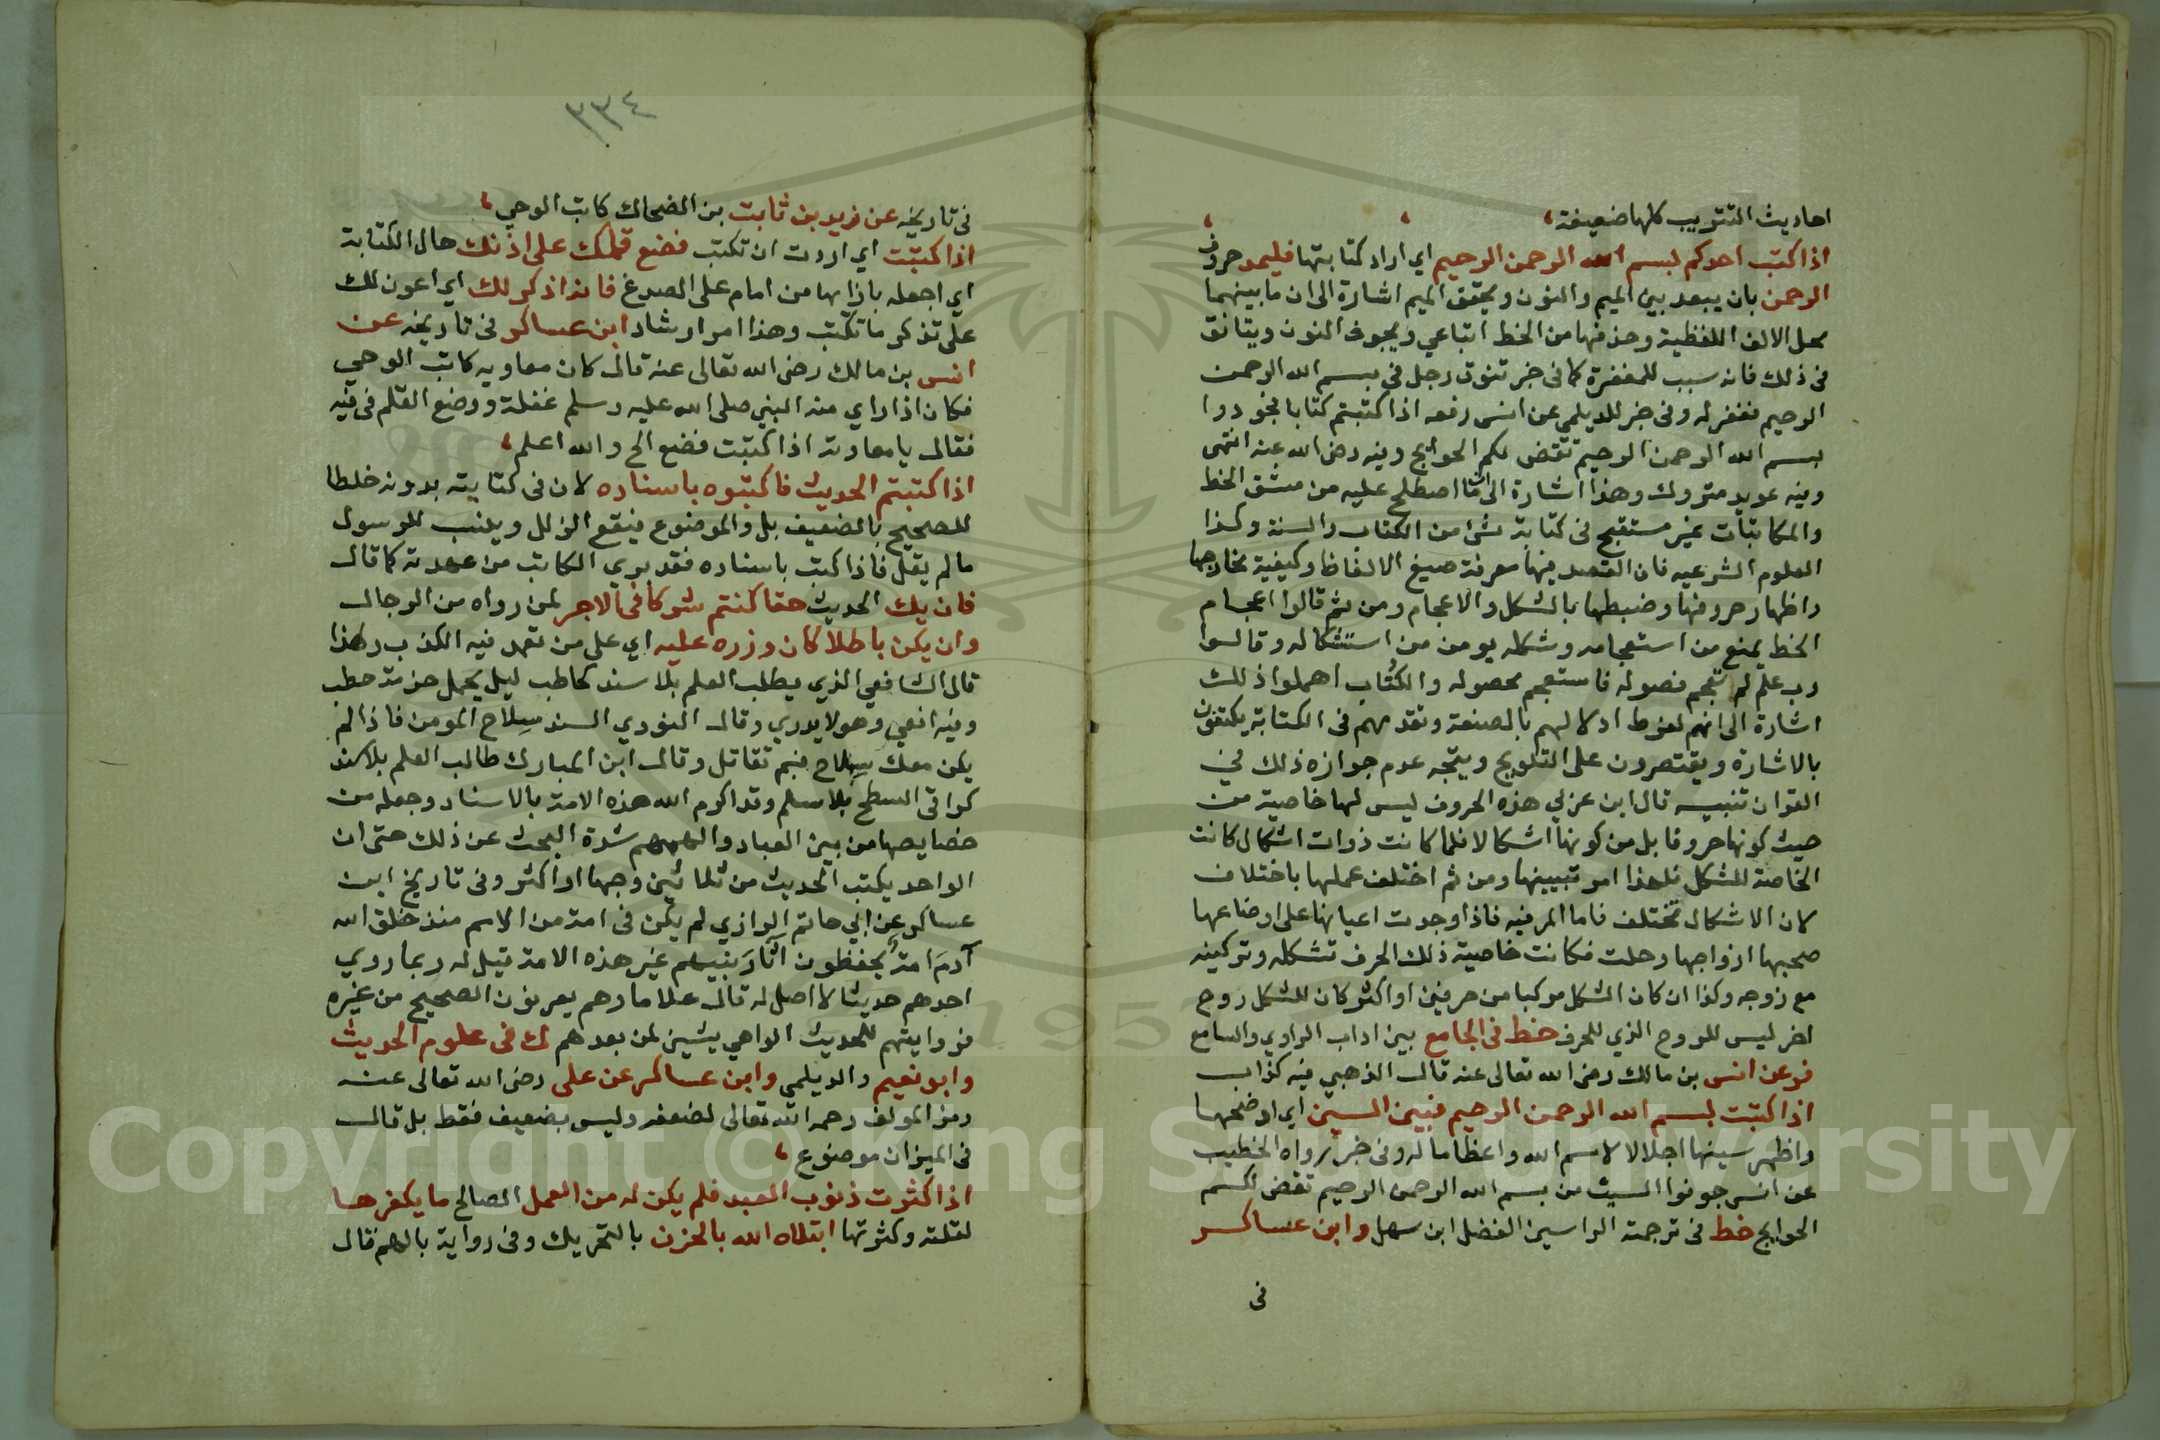 احاديث التتريب كلها ضعيفة
اذا كتب احدكم بسم الله الرحمن الرحيم اي اراد كتابتها فليمد حروف
الرحمن بان يبعد بين الميم والنون ويحقق الميم اشارة الى ان ما بينهما
محل الالف اللفظية وحذفها من الخط اتباعي ويجوف النون ويتانق
في ذلك فانه سبب للمغفرة كما في خبر تنوق رجل في بسم الله الرحمن
الرحيم فغفر له وفي خبر للديلمي عن انس رفعه اذا كتبتم كتابا فجودوا
بسم الله الرحمن الرحيم تقضى لكم الحوايج وفيه رضى الله عنه انتهى
وفيه عويد متروك وهذا اشارة الى ان ما اصطلح عليه من مشق الخط
والمكاتبات غير مستقبح في كتابة شئ من الكتاب والسنة وكذا
العلوم الشرعيه فان القصد فيها معرفة صيغ الالفاظ وكيفية مخارجها
واظهار حروفها وضبطها بالشكل والاعجام ومن ثم قالوا اعجام
الخط يمنع من استعجامه وشكله يومن من استشكاله وقالوا
رب علم لم تعجم فصوله فاستعجم محصوله والكتاب اهملوا ذلك
اشارة الى انهم لفرط ادلالهم بالصنعة وتقدمهم في الكتابة يكتفون
بالاشارة ويقتصرون على التلويح ويتجه عدم جوازه ذلك في
القران تنبيه قال ابن عربي هذه الحروف ليس لها خاصية من
حيث كونها حروفا بل من كونها اشكالا فلما كانت ذوات اشكال كانت
الخاصة للشكل فلهذا امر تبيينها ومن ثم اختلف عملها باختلاف
لان الاشكال تختلف فاما المرقيه فاذا وجدت اعيانها على اوضاعها
صحبها ازواجها وحلت فكانت خاصية ذلك الحرف تشكله وتركيبه
مع زوجه وكذا ان كان الشكل مركبا من حرفين او اكثر كان للشكل روح
اخر ليس للروح الذي للحرف خط في الجامع بين اداب الراوي والسامع
فر عن انس بن مالك رضى الله تعالى عنه قال الذهبي فيه كذاب
اذا كتبت بسم الله الرحمن الرحيم فبين السين اي اوضحها
واظهر سينها اجلالا لاسم الله واعظاما له وفي خبر رواه الخطيب
عن انس جونوا السيث من بسم الله الرحمن الرحيم تقضى لكم
الحوايج خط في ترجمة الراسين الفضل ابن سهل وابن عساكر
في
٣٣٤
في تاريخه عن زيد بن ثابت بن الضحاك كاتب الوحي
اذا كتبت اي اردت ان تكتب فضع قلمك على اذنك حال الكتابة
اي اجعله بازايها من امام على الصدغ فانه اذكر لك اي اعون لك
على تذكر ما تكتب وهذا امر ارشاد ابن عساكر في تاريخه عن
انس بن مالك رضى الله تعالى عنه قال كان معاويه كاتب الوحي
فكان اذا راي منه النبي صلى الله عليه وسلم غفلة ووضع القلم في فيه
فقال يا معاوية اذا كتبت فضع الخ والله اعلم
اذا كتبتم الحديث فاكتبوه باسناده لان في كتابته بدونه خلطا
للصحيح بالضعيف بل والموضوع فيقع الزلل وينسب للرسول
ما لم يقل فاذا كتب باسناده فقد بري الكاتب من عهدته كما قال
فان يك الحديث حقا كنتم شركا في الاجر لمن رواه من الرجال
وان يكن باطلا كان وزره عليه اي على من تعمد فيه الكذب ولهذا
قال الشافعي الذي يطلب العلم بلا سند كحاطب ليل يحمل حزمة حطب
وفيه افعي وهو لا يدري وقال الثوري السند سلاح المومن فاذا لم
يكن معك سلاح فبم تقاتل وقال ابن المبارك طالب العلم بلا سند
كراقي السطح بلا سلم وقد اكرم الله هذه الامة بالاسناد وجعله من
خصايصها من بين العباد والهمهم شدة البحث عن ذلك حتى ان
الواحد يكتب الحديث من ثلاثين وجها او اكثر وفي تاريخ ابن
عساكر عن ابي حاتم الرازي لم يكن في امة من الامم منذ خلق الله
آدم امة يحفظون آثار نبيهم غير هذه الامة قيل له ربما روي
احدهم حديثا لا اصل له قال علماوهم يعرفون الصحيح من غيره
فروايتهم للحديث الواهي يثبين لمن بعدهم ك في علوم الحديث
وابو نعيم والديلمي وابن عساكر عن على رضى الله تعالى عنه
رمز المولف رحمه الله تعالى لضعفه وليس بضعيف فقط بل قال
في الميزان موضوع
اذا كثرت ذنوب العبد فلم يكن له من العمل الصالح ما يكفرها
لقلته وكثرتها ابتلاه الله بالحزن بالتحريك وفي رواية بالهم قال
Copyright © King Saud University
1957